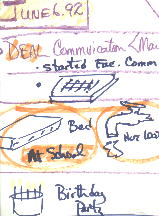 JUNE 6.92
BEN Commvication < Mai
. started Fac. Comm
Bed
Not 100
At School
Birthday
Party